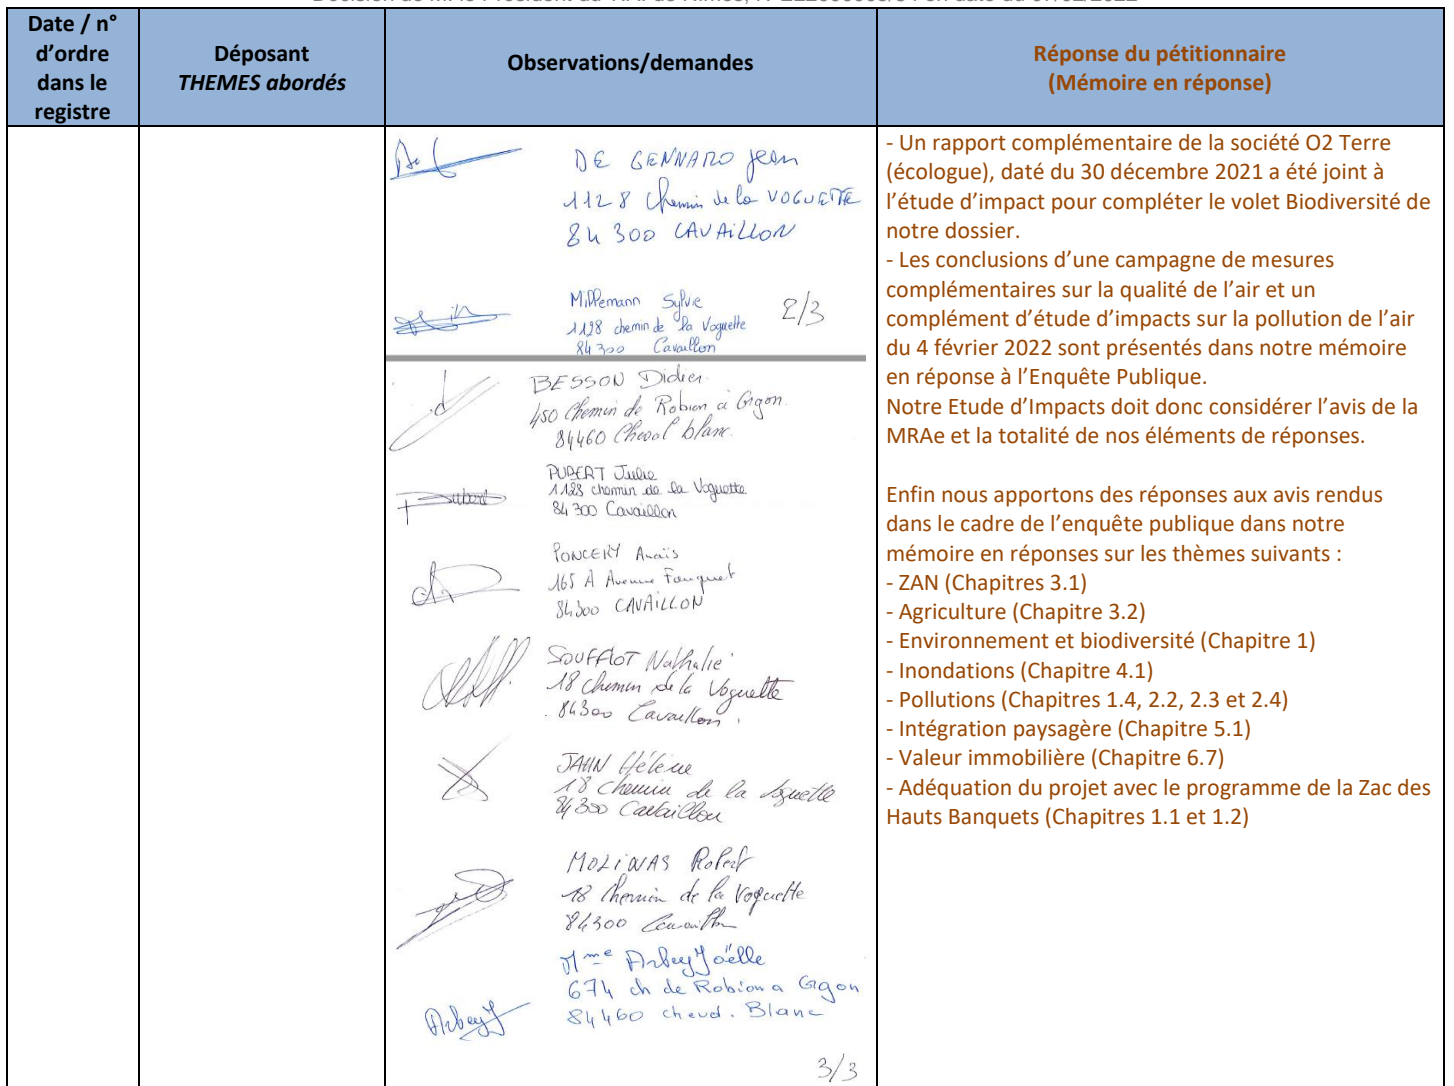 Date / n°
d’ordre
dans le
registre
Déposant
THEMES abordés
Observations/demandes
Réponse du pétitionnaire
(Mémoire en réponse)
DE GENNARO Jean
1128 Chemin de la VOGUETTE
84 300 CAVAILLON
Sylvie
1128 chemin de la Voguette
84300 Cavaillon
2/3
BESSON Didier
450 Chemin de Robion à Orgon
84460 Cheval blanc
Julie
1128 chemin de la Voguette
84 300 Cavaillon
Anaïs
165 A Avenue
84300 CAVAILLON
SOUFFLOT Nathalie
18 Chemin de la Voguette
84300 Cavaillon
JAHN Hélène
18 Chemin de la Voguette
84300 Cavaillon
MOLINAS Robert
18 Chemin de la Voguette
84300 Cavaillon
Mme Arbey Joëlle
674 ch de Robion a Orgon
84460 cheval. Blanc
Arbey J
3/3
- Un rapport complémentaire de la société O2 Terre
(écologue), daté du 30 décembre 2021 a été joint à
l’étude d’impact pour compléter le volet Biodiversité de
notre dossier.
- Les conclusions d’une campagne de mesures
complémentaires sur la qualité de l’air et un
complément d’étude d’impacts sur la pollution de l’air
du 4 février 2022 sont présentés dans notre mémoire
en réponse à l’Enquête Publique.
Notre Etude d’Impacts doit donc considérer l’avis de la
MRAe et la totalité de nos éléments de réponses.
Enfin nous apportons des réponses aux avis rendus
dans le cadre de l’enquête publique dans notre
mémoire en réponses sur les thèmes suivants :
- ZAN (Chapitres 3.1)
- Agriculture (Chapitre 3.2)
- Environnement et biodiversité (Chapitre 1)
- Inondations (Chapitre 4.1)
- Pollutions (Chapitres 1.4, 2.2, 2.3 et 2.4)
- Intégration paysagère (Chapitre 5.1)
- Valeur immobilière (Chapitre 6.7)
- Adéquation du projet avec le programme de la Zac des
Hauts Banquets (Chapitres 1.1 et 1.2)